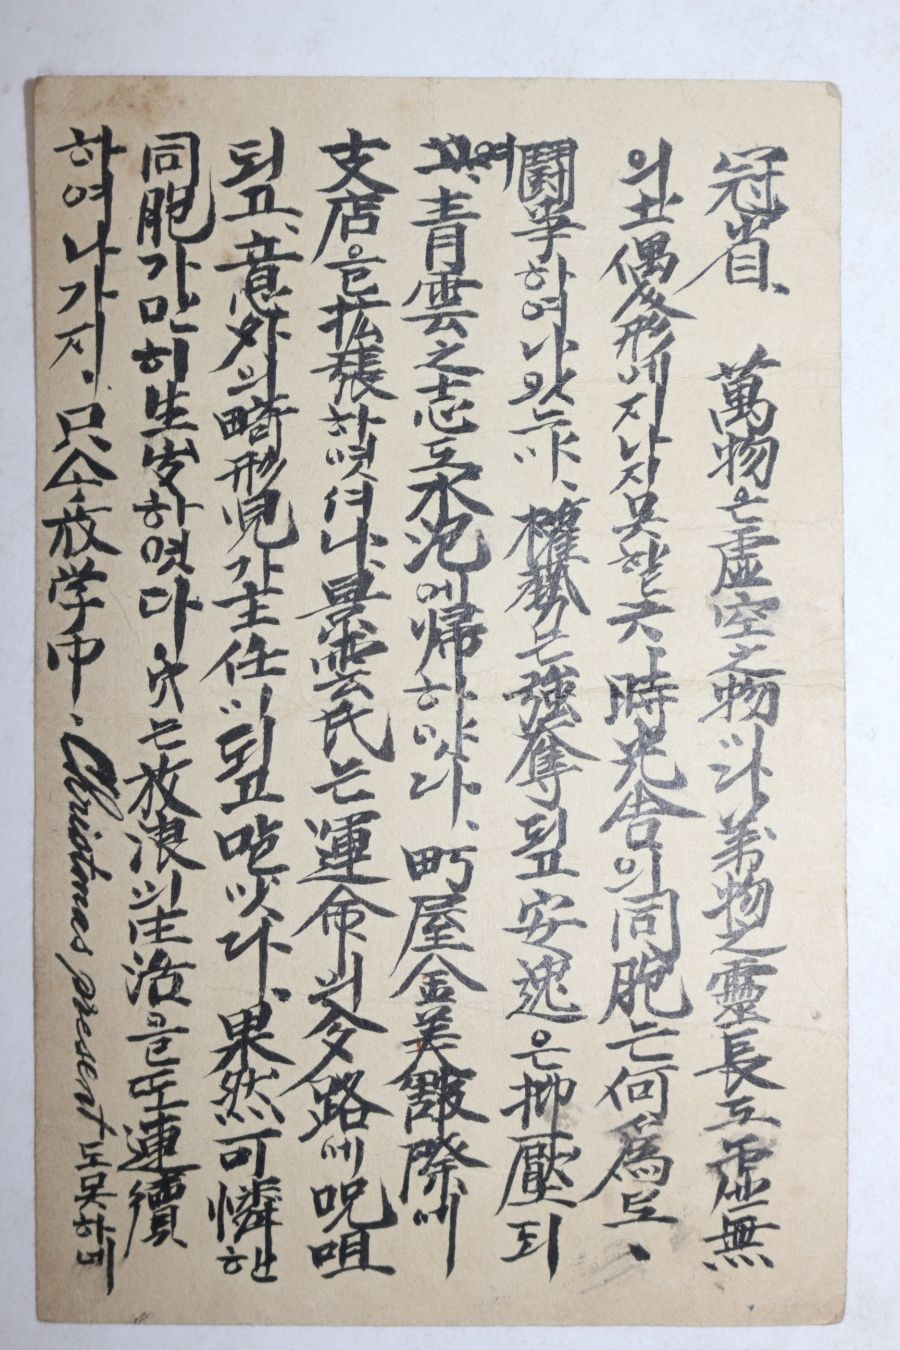 冠省、 萬物은 虛空之物이라, 萬物之靈長도 虛無
의 土偶形에 지나지 못할 天、 時光告의 同胞는 何爲도、
鬪爭하여 나왓는가、 權勢는 強奪되고 安逸은 抑壓되
여 靑雲之志도 水泡에 歸하얏다、 町屋金美館際에
支店을 拡張하엿서나、 景雲氏는 運命의 多路에 呪咀
되고、 意外의 畸形児가 主任이 되고 말앗다、 果然可憐한
同胞가 만히 生出하엿다 는 放浪의 生活을 또 連續
하여나가지. 只今放学中. Christmas present도 못하네